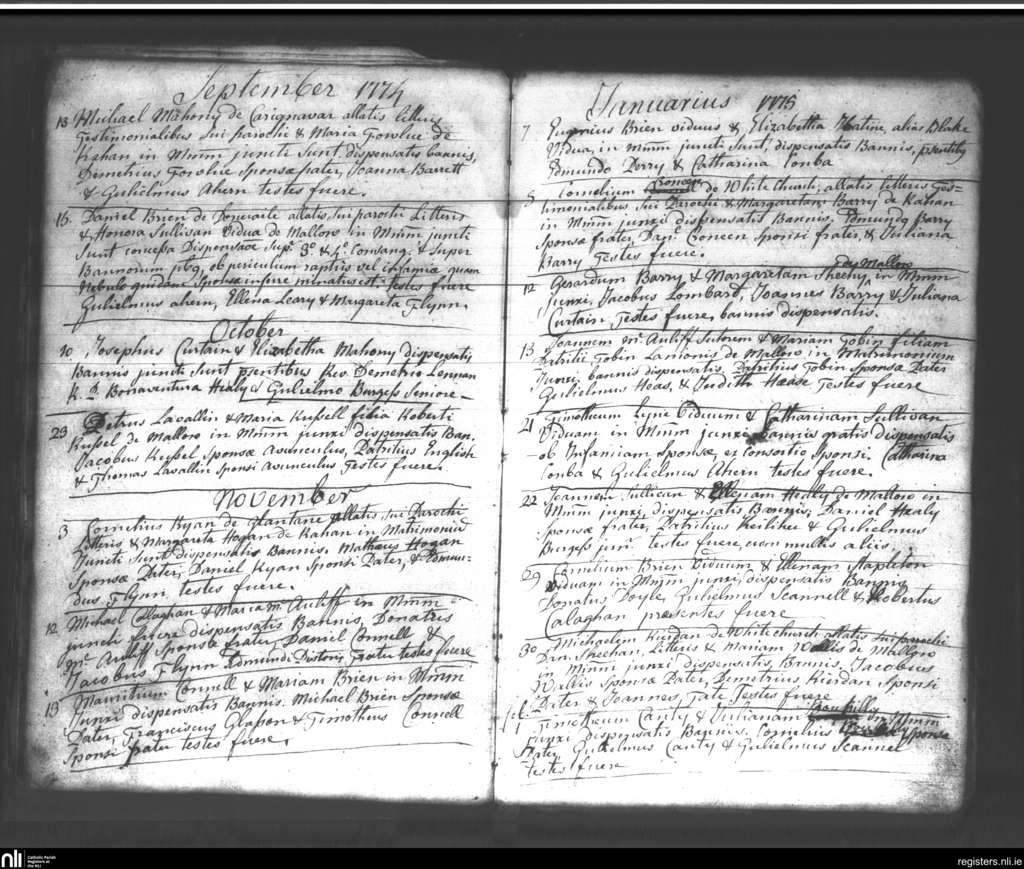 September 1774
13 Michael Mahony de Carignavar allatis litteris
Testimonialibus sui parochi & Maria Fowlue de
Kahan in Mmm juncti sunt, dispensatis bannis,
Demetrius Fowlue sponsæ pater, Joanna Barrett
& Gulielmus Ahern testes fuere.
15 Daniel Brien de allatis sui parochi Litteris
& Honora Sullivan Vidua de Mallow in Mmm juncti
Sunt concessa Dispensaoe Sup. 3o & 4o Consang. & super
Bannorum ob periculum raptus vel infamiæ quam
Nebulo quidam Sponsæ minatus est. testes fuere
Gulielmus ahern, Ellena Leary & Margareta Flynn.
October
10 Josephus Curtain & Elizabetha Mahony dispensatis
Bannis juncti sunt psentibus Rev. Demetrio Lennan
R. D. Bonaventura Healy & Gulielmo Burgess Seniore
23 Petrus Lavallin & Maria Russell filia Roberti
Russel de Mallow in Mmm junxi dispensatis Ban.
Jacobus Russel Sponsæ Avunculus, Patritius English
& Thomas Lavallin Sponsi Avunculus Testes fuere.
November
3 Cornelius Ryan de Glantane allatis sui Parochi
Litteris & Margareta Hogan de Kahan in Matrimonio
Juncti Sunt dispensatis Bannis. Mathæus Hogan
Sponsæ Pater, Daniel Ryan Sponsi Pater, & Edmun-
dus Flynn testes fuere.
12 Michael Callaghan & Maria M. Auliff in Mmm
juncti fuere dispensatis Bannis, Donatus
Mc Auliff Sponsæ frater, Daniel Connell &
Jacobus Flynn Edmundi Pistoris Frater testes fuere
13 Mauritium Connell & Mariam Brien in Mmm
Junxi dispensatis Bannis. Michael Brien Sponsæ
Pater, Franciscus Glasson & Timotheus Connell
Sponsi frater testes fuere.
Januarius 1775
7 Eugenius Brien viduus & Elizabetha Martine, alias Blake
Vidua, in Mmm juncti sunt, dispensatis Bannis, psentibus
Edmundo Derry & Catharina Conba
5 Cornelium Croneen de White Church, allatis litteris Tes-
timonialibus sui Parochi & Margaretam Barry de Kahan
in Mmm junxi dispensatis Bannis. Edmundo Barry
Sponsæ frater, Danl. Croneen Sponsi frater, & Juliana
Barry Testes fuere.
12 Gerardum Barry & Margaretam Sheehy de Mallow in Mmm
junxi. Jacobus Lombard, Joannes Barry & Juliana
Curtain Testes fuere, bannis dispensatis.
13 Joannem Mc Auliff Sutorem & Mariam Tobin filiam
Patritii Tobin Lanionis de Mallow in Matrimonium
Junxi, bannis dispensatis. Patritius Tobin Sponsæ Pater
Gulielmus Hoas, & Judith Hease Testes fuere
21 Timotheum Lyne Viduum & Catharinam Sullivan
Viduam in Mmm junxi, Bannis gratis dispensatis
ob Infamiam sponsæ, ex Consortio Sponsi. Catharina
Conba & Gulielmus Ahern Testes fuere.
22 Joannem Sullivan & Ellenam Healy de Mallow in
Mmm junxi dispensatis Bannis, Daniel Healy
Sponsæ frater, Patritius Keilihee & Gulielmus
Burgess junr. testes fuere, cum multis aliis.
29 Cornelium Brien Viduum & Ellenam Stapleton
Viduam in Mmm junxi, dispensatis Bannis
Donatus Doyle, Gulielmus Scannell & Robertus
Calaghan præsentes fuere
30 Michaelem Riordan de Whitechurch, allatis sui parochi
Dan. Sheehan, Litteris & Mariam Wallis de Mallow
in Mmm junxi dispensatis, Bannis, Jacobus
Wallis Sponsæ Pater, Demetrius Riordan Sponsi
Pater & Joannes Tate Testes fuere
Timotheum Canty & Julianam in Mmm
Junxi Dispensatis Bannis. Cornelius Sponsæ
Pater, Gulielmus Canty & Gulielmus Scannel
testes fuere
nli Catholic Parish
Registers at
the NLI
registers.nli.ie